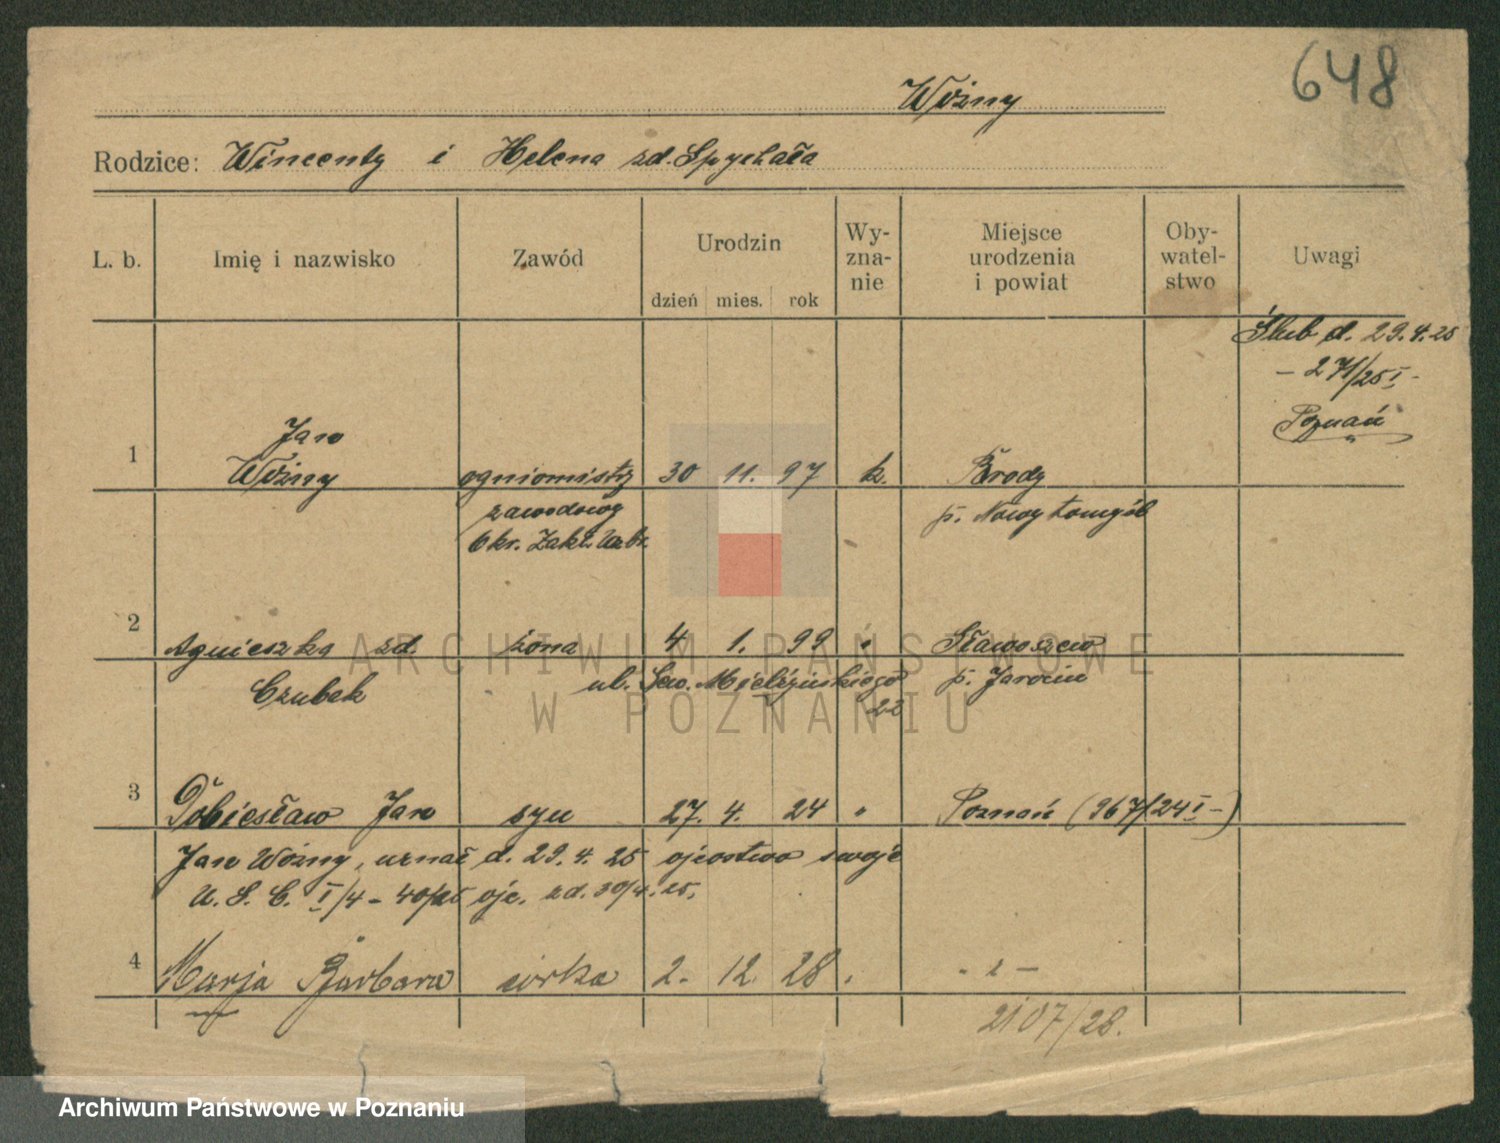 648
Woźny
Rodzice: Wincenty i Helena zd. Spychała
L. b. Imię i nazwisko Zawód Urodzin dzień mies. rok Wy-zna-nie Miejsce urodzenia i powiat Oby-watel-stwo Uwagi
Ślub d. 29.4.25
- 271/25 I -
Poznań
1 Jan
Woźny ogniomistrz 30 11. 97 k. Brody
zawodowy p. Nowy Tomyśl
Okr. Zakł. Uzbr.
2 Agnieszka zd. żona 4 1. 99 " Sławoszew
Czubak ul. Sew. Mielżyńskiego p. Jarocin
22
3 Dobiesław Jan syn 27. 4. 24 " Poznań (967/24 I -)
Jan Woźny, uznał d. 29.4.25 ojcostwo swoje
U. S. C. I/4 - 40/25 ojc. zd. 30/4.25.
4 Marja Barbara córka 2. 12 28 " - " -
2107/28.
ARCHIWUM PAŃSTWOWE
W POZNANIU
Archiwum Państwowe w Poznaniu